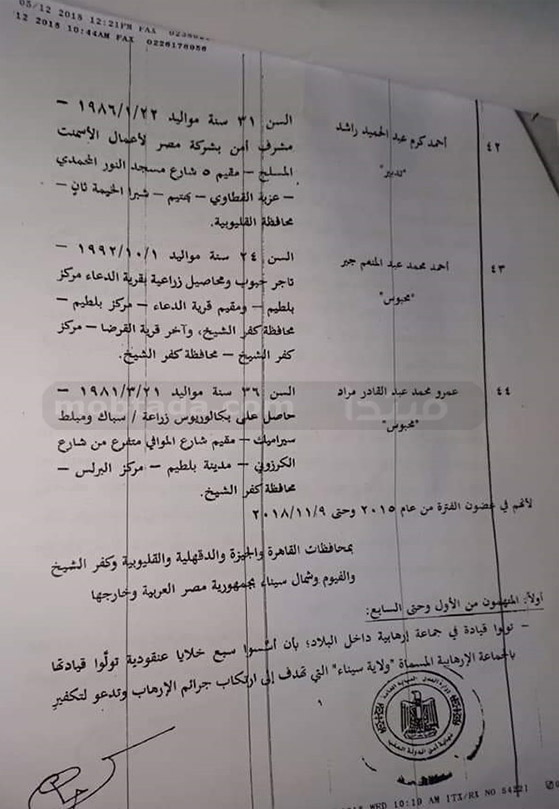 05/12 2018 12:21PM FAX
12 2018 10:44AM FAX 0226178056
٤٢
أحمد كرم عبد الحميد راشد
"تدبير"
السن ٣١ سنة مواليد ١٩٨٦/١/٢٢ –
مشرف أمن بشركة مصر لأعمال الأسمنت
المسلح – مقيم ٥ شارع مسجد النور المحمدي
– عزبة الفطاوي – بهتيم – شبرا الخيمة ثان –
محافظة القليوبية.
٤٣
أحمد محمد عبد المنعم جبر
"محبوس"
السن ٢٤ سنة مواليد ١٩٩٢/١٠/١ –
تاجر حبوب ومحاصيل زراعية بقرية الدعاء مركز
بلطيم – ومقيم قرية الدعاء – مركز بلطيم –
محافظة كفر الشيخ، وآخر قرية القرضا – مركز
كفر الشيخ – محافظة كفر الشيخ.
٤٤
عمرو محمد عبد القادر مراد
"محبوس"
السن ٣٦ سنة مواليد ١٩٨١/٣/٢١ –
حاصل على بكالوريوس زراعة / سباك ومبلط
سيراميك – مقيم شارع الموافي متفرع من شارع
الكرزوني – مدينة بلطيم – مركز البرلس –
محافظة كفر الشيخ.
لأنهم في غضون الفترة من عام ٢٠١٥ وحتى ٢٠١٨/١١/٩
بمحافظات القاهرة والجيزة والدقهلية والقليوبية وكفر الشيخ
والفيوم وشمال سيناء بجمهورية مصر العربية وخارجها
أولاً: المتهمون من الأول وحتى السابع:
– تولوا قيادة في جماعة إرهابية داخل البلاد؛ بأن أسَّسوا سبع خلايا عنقودية تولَّوا قيادتها
بالجماعة الإرهابية المسماة "ولاية سيناء" التي تهدف إلى ارتكاب جرائم الإرهاب وتدعو لتكفير
١
WED 10:19 AM ITX/RX NO 5422